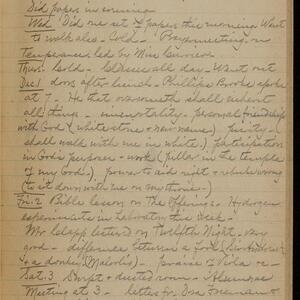 Did papers in evening
Wed. Did one set of papers this morning Went
to walk also - Cold - Prayer meeting on
Temperance led by Miss
Thurs. Cold - Classes all day - Went out
Dec 1 doors after lunch - Phillips Brooks spoke
at 7 - He that overcometh shall inherit
all things - immortality - personal friendship
with God (white stone & new name) purity -
shall walk with me in white), participation
in Gods purposes - work (pillar in the temple
of my God), power to aid right & rebuke wrong
(to sit down with me on my throne -)
Fri. 2 Bible lesson on The Offerings - Hydrogen
experiments in Laboratory this week -
Mr Clapp lettered on Twelfth Night - very
good - difference between a fool (Sir Andrew)
& a donkey (Malvolio) - praise of Viola &c -
Sat. 3 Swept - dusted room - Alumnae
Meeting at 3 - letter for Dora Freeman &